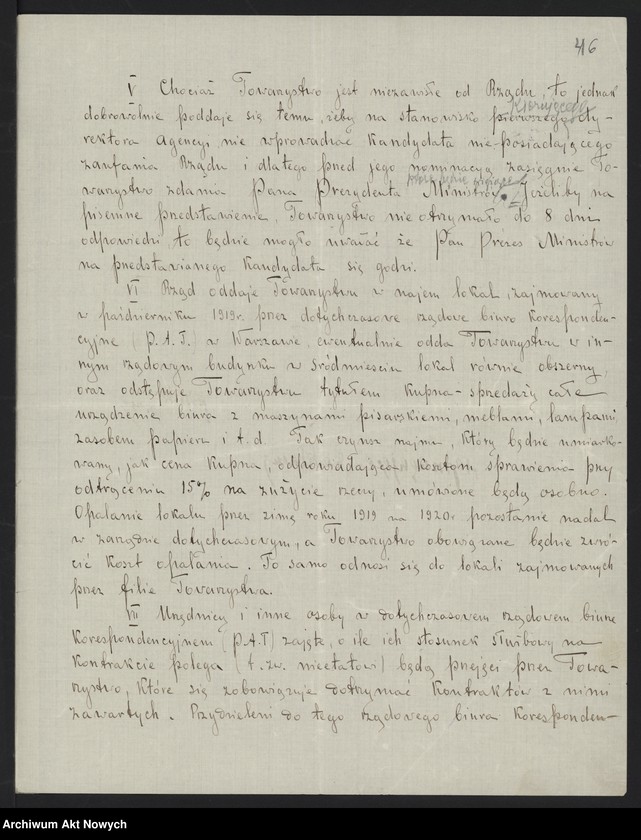 46
V Chociaż Towarzystwo jest niezawisłe od Rządu, to jednak
dobrowolnie poddaje się temu, żeby na stanowisko pierwszego dy-
kierującego
rektora Agencyi nie wprowadzać kandydata nie posiadającego
zaufania Rządu i dlatego przed jego nominacyą zasięgnie To-
warzystwo zdania Pana Prezydenta Ministrów. Jeżeliby na
pisemne przedstawienie, Towarzystwo nie otrzymało do 8 dni
odpowiedzi, to będzie mogło uważać że Pan Prezes Ministrów
na przedstawianego kandydata się godzi.
VI Rząd oddaje Towarzystwu w najem lokal, zajmowany
w październiku 1919r. przez dotychczasowe rządowe biuro koresponden-
cyjne (P.A.T.) w Warszawie, ewentualnie odda Towarzystwu w in-
nym rządowym budynku w śródmieściu lokal równie obszerny,
oraz odstępuje Towarzystwu tytułem kupna-sprzedaży całe
urządzenie biura z maszynami pisarskiemi, meblami, lampami,
zasobem papieru i t.d. Tak czynsz najmu, który będzie umiarko-
wany, jak cena kupna, odpowiadająca kosztom sprawienia przy
odtrąceniu 15% na zużycie rzeczy, umówione będą osobno.
Opalanie lokalu przez zimę roku 1919 na 1920r. pozostanie nadal
w zarządzie dotychczasowym, a Towarzystwo obowiązane będzie zwró-
cić koszt opalania. To samo odnosi się do lokali zajmowanych
przez filie Towarzystwa.
VII Urzędnicy i inne osoby w dotychczasowem rządowem biurze
korespondencyjnem (P.A.T) zajęte, o ile ich stosunek służbowy na
kontrakcie polega (t. zw. nieetatowi) będą przejęci przez Towa-
rzystwo, które się zobowiązuje dotrzymać kontraktów z nimi
zawartych. Przydzieleni do tego rządowego biura koresponden-
Archiwum Akt Nowych